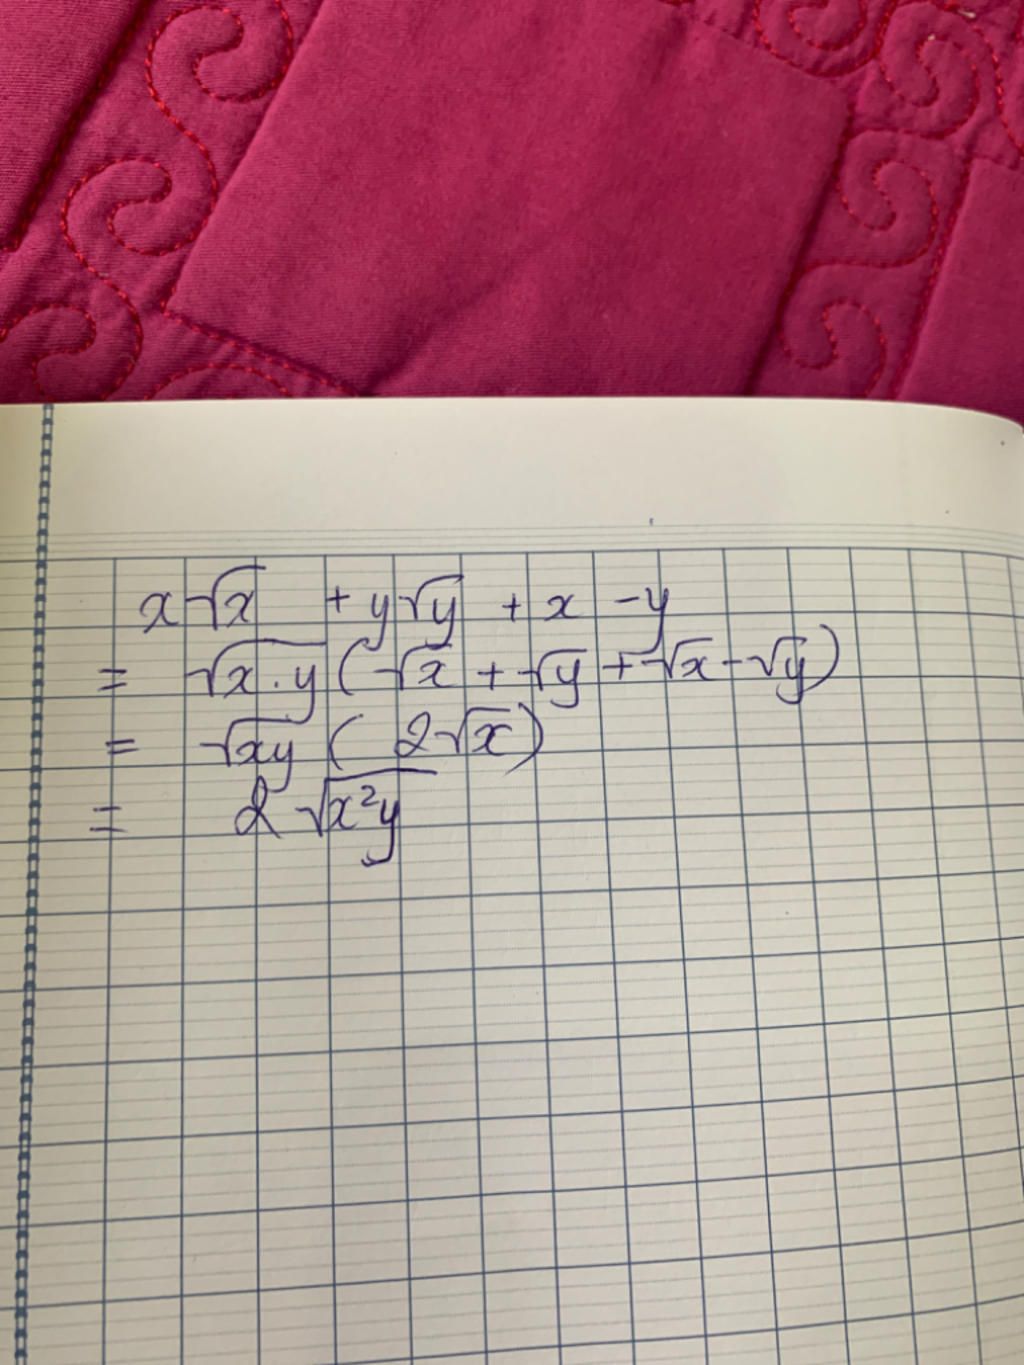 x√x + y√y + x - y
= √x.y (√x + √y + √x - √y)
= √xy ( 2√x)
= 2 √x²y